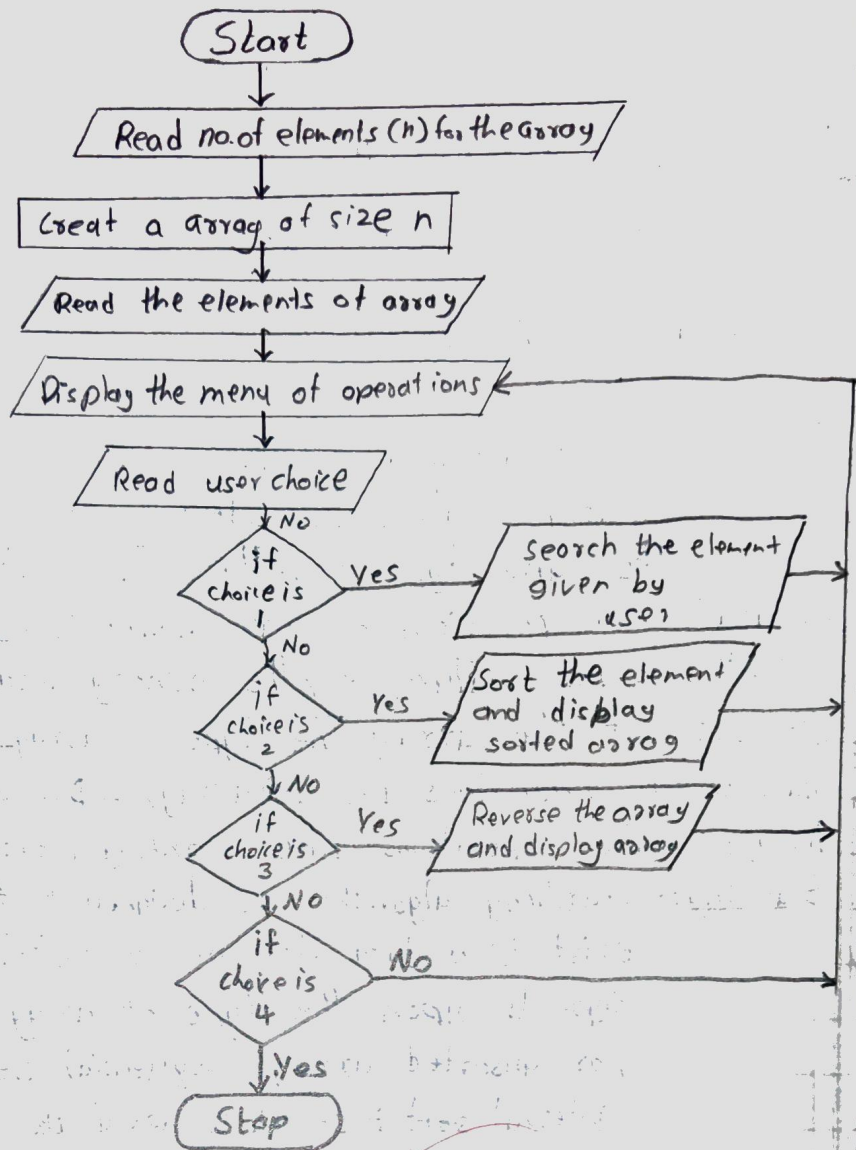 Start
Read no.of elements (n) for the array
Creat a array of size n
Read the elements of array
Display the menu of operations
Read user choice
No
if
choice is
1
Yes
search the element
given by
user
No
if
choice is
2
Yes
Sort the element
and display
sorted array
No
if
choice is
3
Yes
Reverse the array
and display array
No
if
choice is
4
No
Yes
Stop